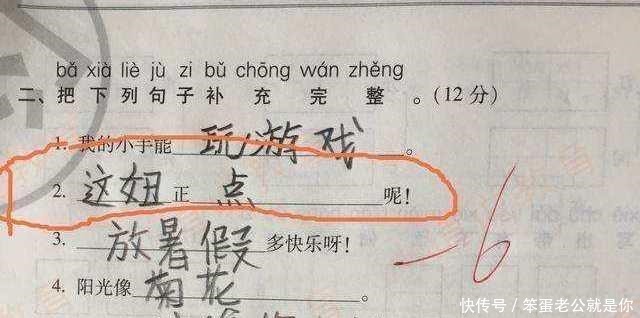 bǎ xià liè jù zi bǔ chōng wán zhěng
二、把下列句子补充完整。(12分)
1. 我的小手能玩游戏。
2. 这妞正点呢!
3. 放暑假多快乐呀!
4. 阳光像菊花。
-6
快传号/笨蛋老公就是你